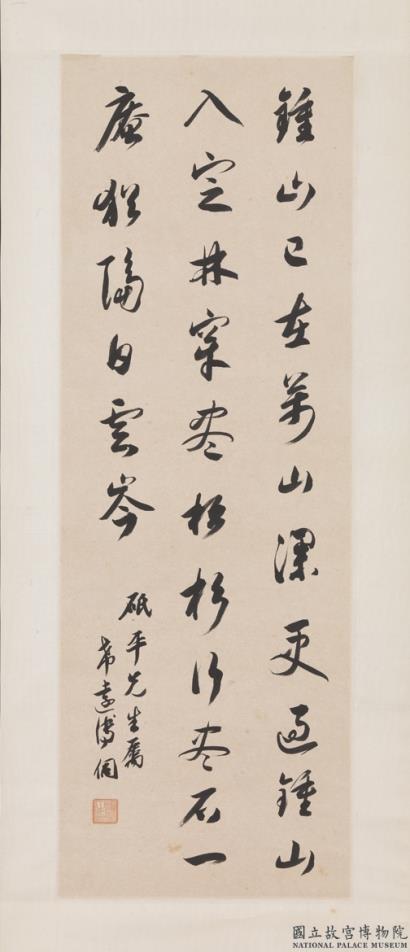 鍾山已在萬山深更過鍾山
入定林穿盡松杉行盡石一
庵猶隔白雲岑
砥平先生屬
溥侗
國立故宮博物院
NATIONAL PALACE MUSEUM